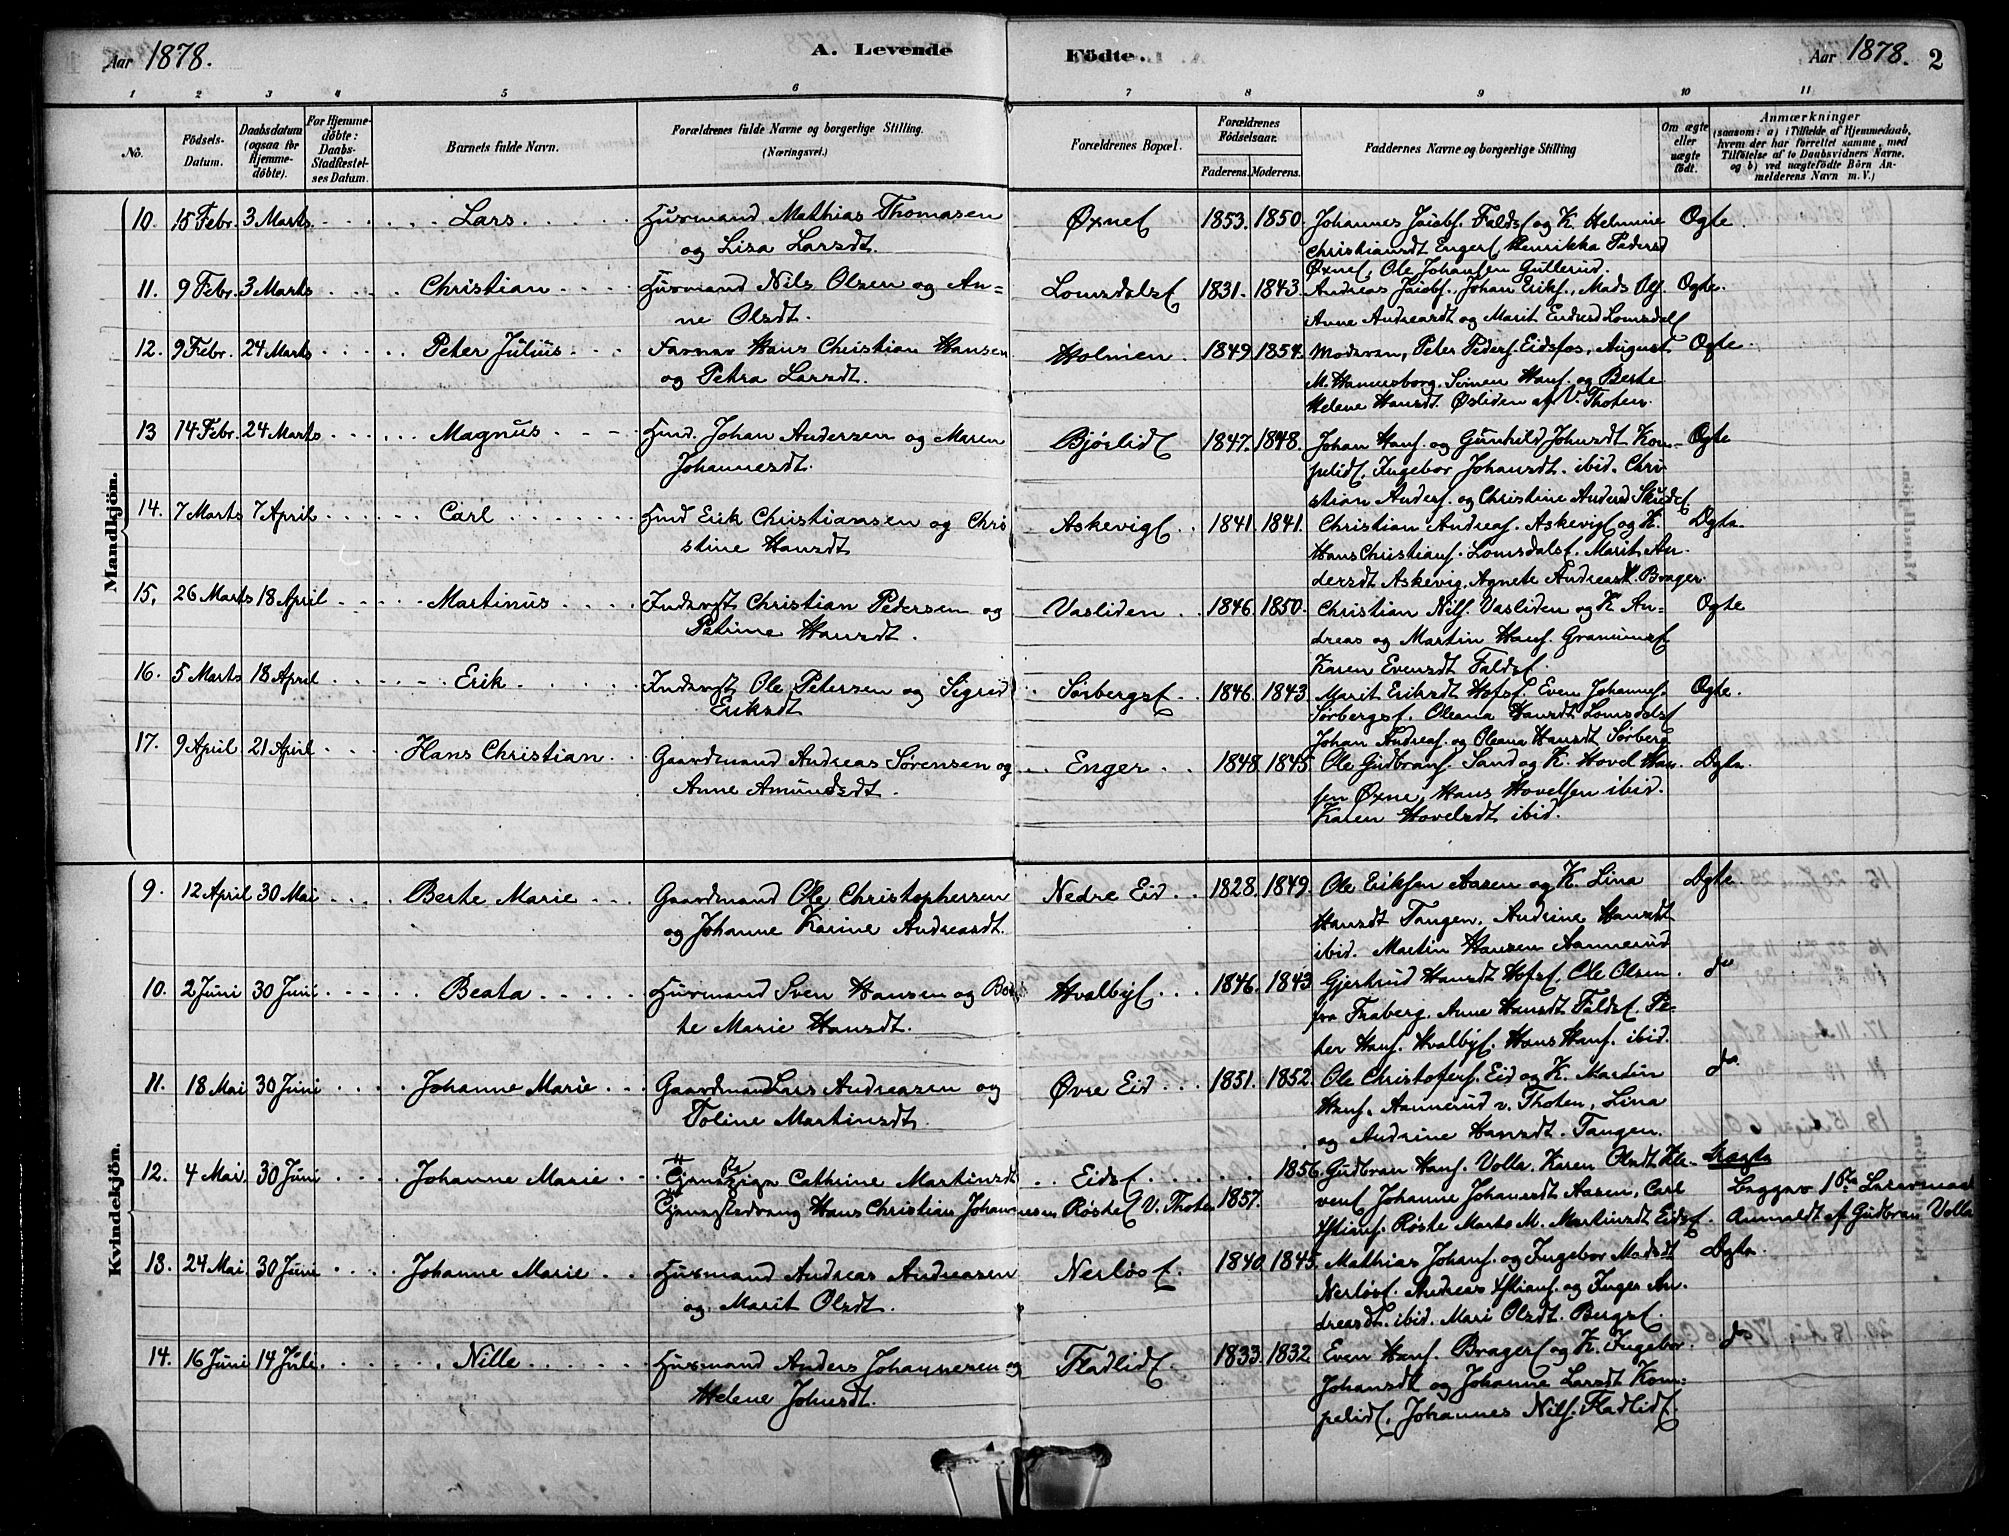 Aar 1878.
A. Levende Födte.
Aar 1878. 2
1 2 3 4 5 6 7 8 9 10 11
No.
Födsels-Datum.
Daabsdatum (ogsaa for Hjemme-döbte).
For Hjemme-döbte: Daabs-Stadfæstel-ses Datum.
Barnets fulde Navn.
Forældrenes fulde Navne og borgerlige Stilling.
(Næringsvei.)
Forældrenes Bopæl.
Forældrenes Födselsaar.
Faderens. Moderens.
Faddernes Navne og borgerlige Stilling
Om ægte eller uægte födt.
Anmærkninger
(saasom: a) i Tilfælde af Hjemmedaab,
hvem der har forrettet samme, med
Tilföielse af to Daabsvidners Navne,
og b) ved uægtefödte Börn An-
melderens Navn m. V.)
Mandkjön.
10. 15 Febr. 3 Marts Lars Husmand Mathias Thomasen Øxne 1853. 1850. Johannes Jacobs. Falds og K. Helmine Ægte.
og Lisa Larsdt. Christiansdt Enger Henrikka Peders
Øxne, Ole Johansen Gullerud.
11. 9 Febr. 3 Marts Christian Husmand Nils Olsen og An= Lomsdals 1831. 1843. Andreas Jacobs. Johan Eriks., Mads Ols. Ægte.
ne Olsdt. Anne Andreasdt og Marit Lomsdal
12. 9 Febr. 24 Marts Peter Julius Hans Christian Hansen Holmen 1849. 1854. Moderen, Peter Peders. Eidsfos, August Ægte
og Petra Larsdt. M. Simen Hans. og Berte
Helene Hansdt. Øsliden af V. Thoten.
13 14 Febr. 24 Marts Magnus Hmd. Johan Andersen og Maren Bjöslid 1847. 1848. Johan Hans. og Gunhild Johnsdt Kom= Ægte
Johannesdt. pelid, Ingebor Johansdt. ibid. Chri
stian Anders. og Christine Andersd
14. 7 Marts 7 April Carl Hmd Erik Christiansen og Chri Askevig 1841. 1841. Christian Andreas. Askevig og K. Ægte
stine Hansdt Hans Christians. Lomsdals. Marit An.
dersdt Askevig, Agnete Andreasdt. Brager.
15. 26 Marts 18 April Martinus Inderst Christian Petersen og Vasliden 1846. 1850. Christian Nils. Vasliden og K. An= Ægte
Petrine Hansdt. dreas og Martin Hans. Granum
Karen Evensdt Falds.
16. 5 Marts 18 April Erik Inderst Ole Petersen og Sigrid Sörbergs 1846. 1843. Marit Eriksdt Hofs. Even Johannes. Ægte.
Eriksdt Sörbergs. Oleana Hansdt Lomsdals
Johan Andreas. og Oleana Hansdt Sörberg
17. 9 April 21 April Hans Christian Gaardmand Andreas Sörensen og Enger 1848. 1845. Ole Gudbrans. Sand og K. Hovel Han. Ægte.
Anne Amundsdt. sen Øxne, Hans Hovelsen ibid.
Karen Hovelsdt ibid.
Kvindekjön.
9. 12 April 30 Mai Berte Marie Gaardmand Ole Christophersen Nedre Eid 1828. 1849. Ole Eriksen Aasen og K. Lina Ægte.
og Johanne Karine Andreasdt. Hansdt Tangen, Andrine Hansdt
ibid. Martin Hansen Aannerud
10. 2 Juni 30 Juni Beata Husmand Sven Hansen og Ber Hvalby 1846. 1843 Gjertrud Hansdt Hofs. Ole Olsen do
te Marie Hansdt. fra Faaberg. Anne Hansdt Falds. Pe-
ter Hans. Hvalby. Hans Hans. ibid.
11. 18 Mai 30 Juni Johanne Marie Gaardmand Lars Andreasen og Övre Eid 1851. 1852. Ole Christofers. Eid og K. Martin do
Toline Martinsdt. Hans. Aannerud v. Thoten, Lina
og Andrine Hansdt. Tangen.
12. 4 Mai 30 Juni Johanne Marie Pige Cathrine Martinsdt Eids 1856. Gudbran Hans. Volla. Karen Olsdt Kle- Uægte
Hans Christian Johannesen Röste V. Thoten 1857. Johanne Johansdt Aasen, Carl Begges 1ste Leiermaal
Röste Marte M. Martinsdt Eids. Anmeldt af Gudbran Volla
13. 24 Mai 30 Juni Johanne Marie Husmand Andreas Andreasen Nerlös 1840. 1845. Mathias Johans. og Ingebor Madsdt Ægte.
og Marit Olsdt. Nerlös. Andreas og Inger An.
dreasdt. ibid. Mari Olsdt. Bergs.
14. 16 Juni 14 Juli Nille Husmand Anders Johannesen og Fladlid 1833. 1832. Even Hans. Brager og K. Ingebor do
Helene Johnsdt. Johansdt og Johanne Larsdt Kom=
pelid, Johannes Nils. Fladlid.